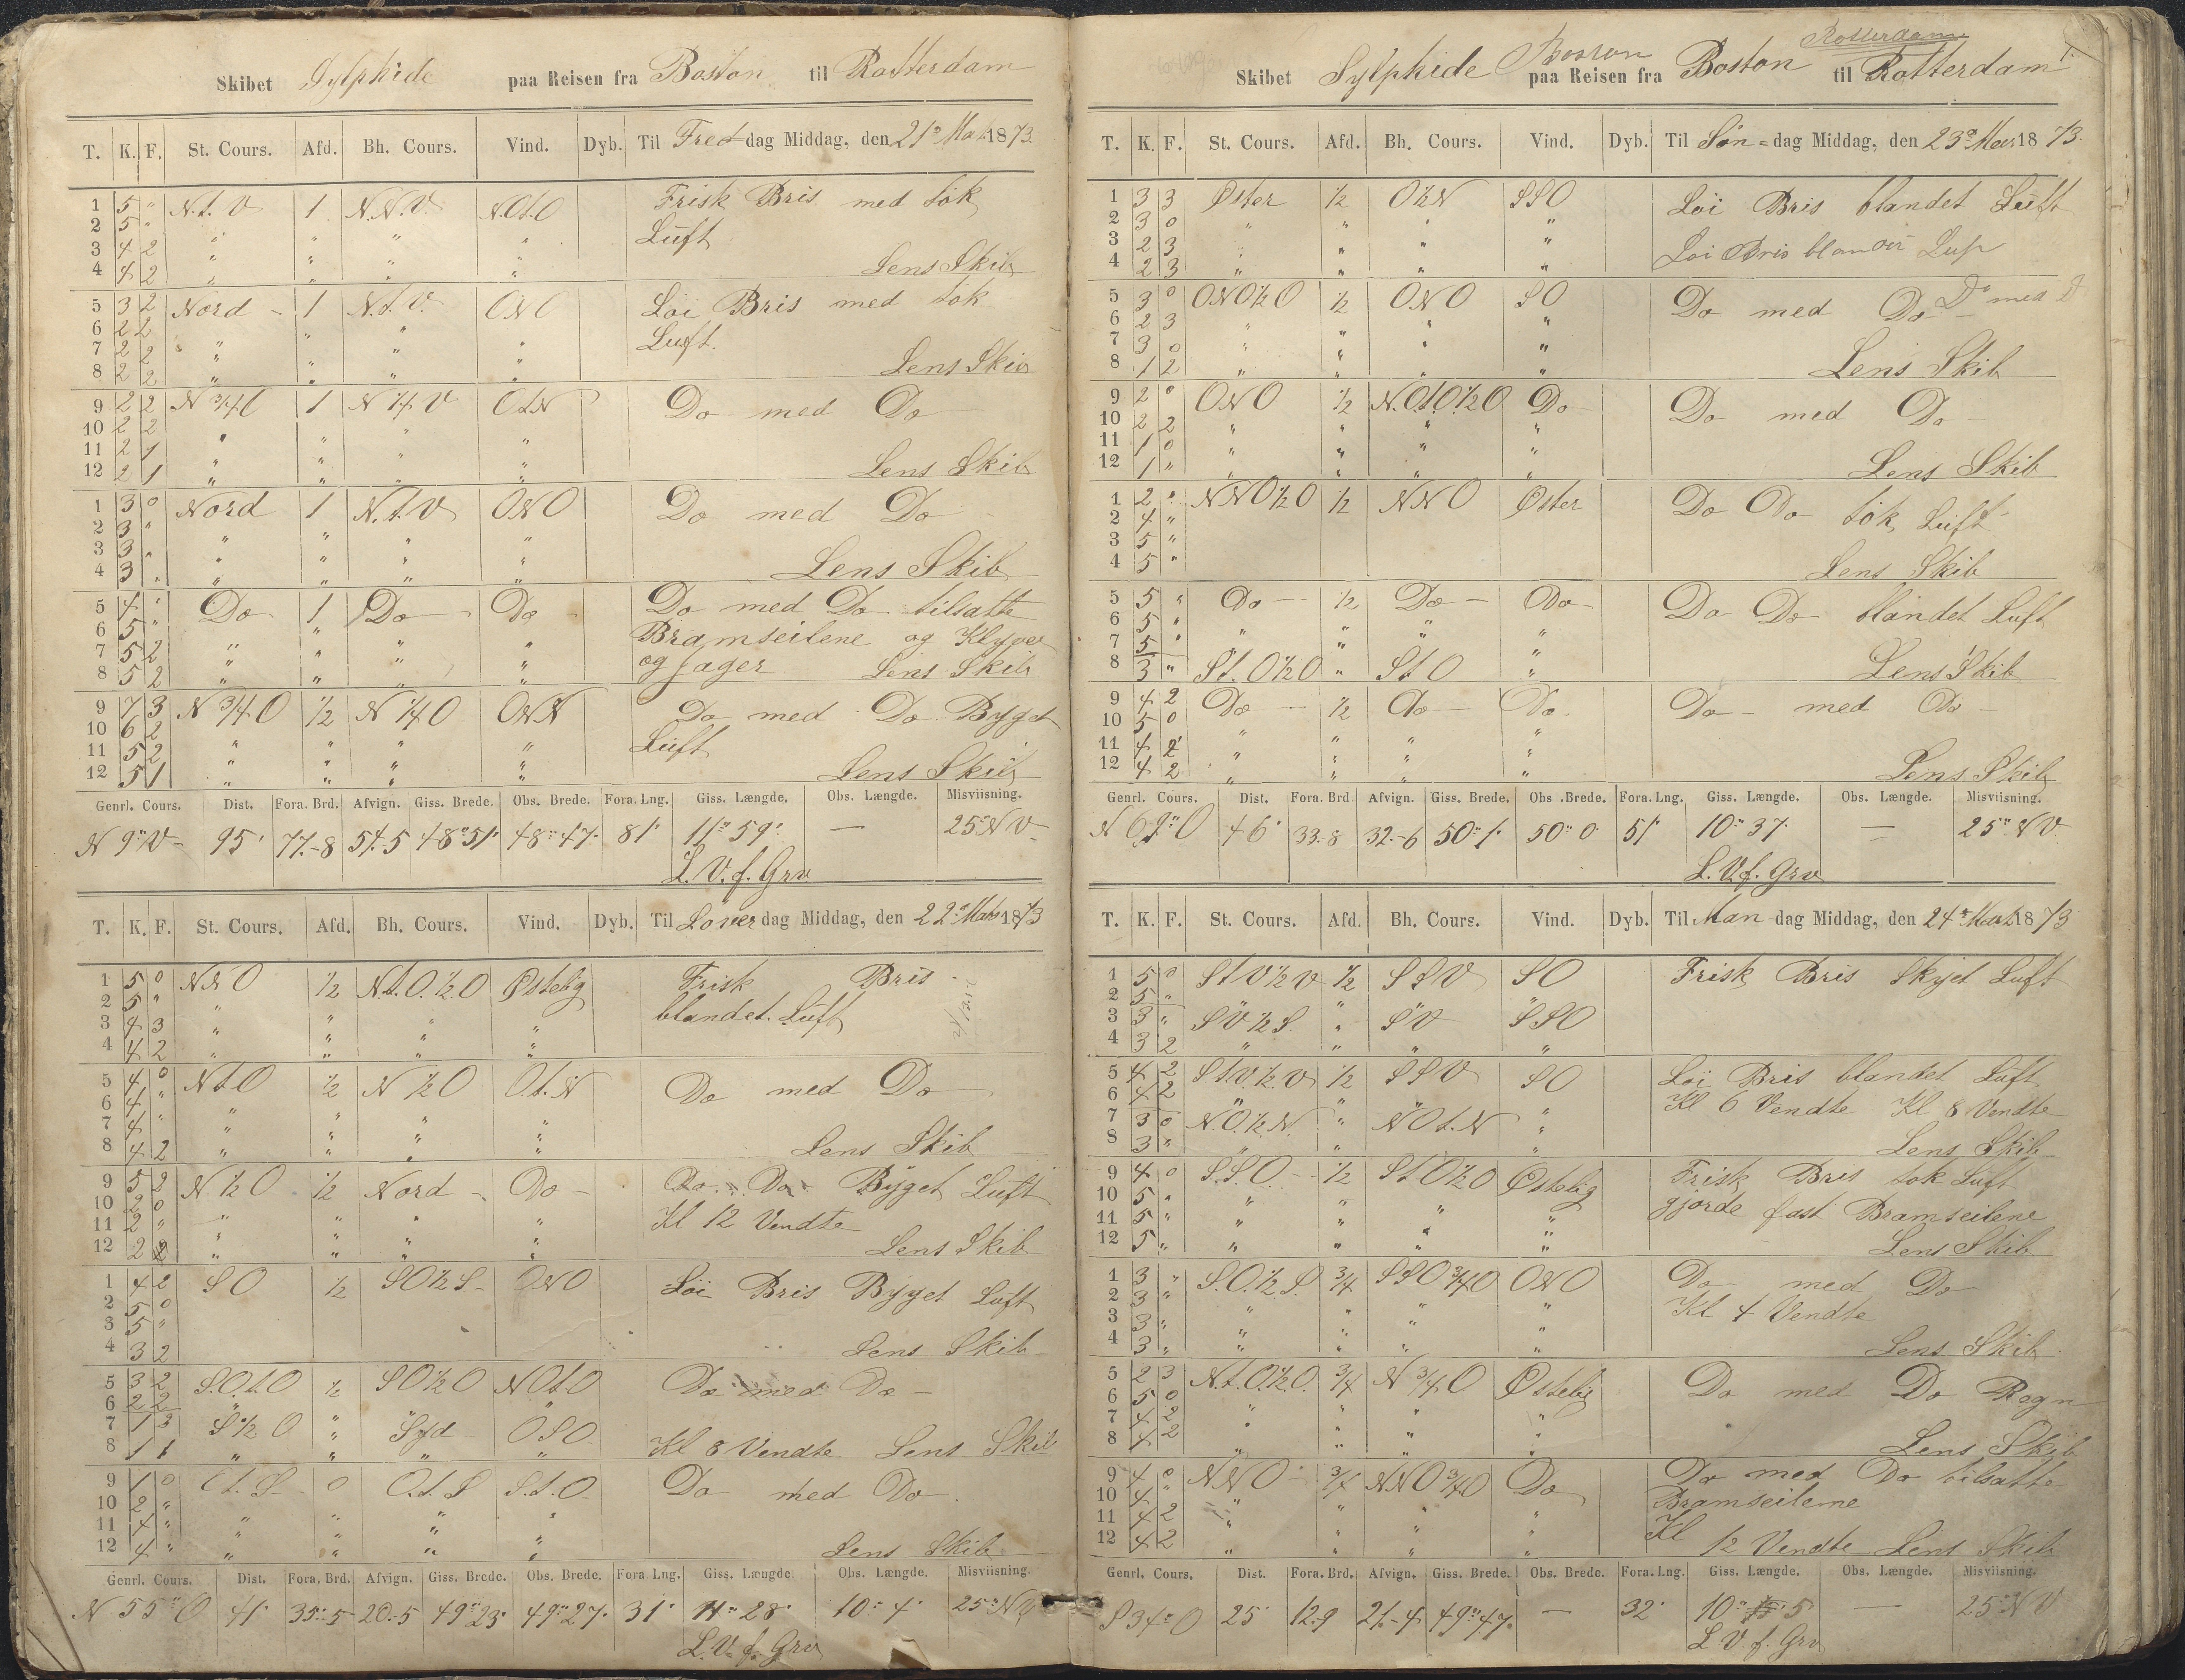 Skibet Sylphide paa Reisen fra Boston til Rotterdam
T. K. F. St. Cours. Afd. Bh. Cours. Vind. Dyb. Til Fredag Middag, den 21de Mars 1873.
1 5 " N.t.V 1 N.N.V. N.O.t.O Frisk Bris med tok
2 5 " " " " " Luft
3 4 2 " " " "
4 4 2 " " " " Lens Skib
5 3 2 Nord - 1 N.t.V. ONO Löi Bris med tok
6 2 2 " " " " Luft.
7 2 2 " " " "
8 2 2 " " " " Lens Skib
9 2 2 N 3/4 O 1 N 1/4 V OtN Do med Do
10 2 2 " " " "
11 2 1 " " " "
12 2 1 " " " " Lens Skib
1 3 0 Nord 1 N.t.V ONO Do med Do
2 3 " " " " "
3 3 " " " " "
4 3 " " " " " Lens Skib
5 4 " Do 1 Do Do Do med Do tilsatte
6 5 " " " " " Bramseilene og Klyver
7 5 2 " " " " og Jager
8 5 2 " " " " Lens Skib
9 7 3 N 3/4 O 1/2 N 1/4 O OtN Do med Do Byget
10 6 2 " " " " Luft
11 5 2 " " " "
12 5 1 " " " " Lens Skib
Genrl. Cours. Dist. Fora. Brd. Afvign. Giss. Brede. Obs. Brede. Fora. Lng. Giss. Længde. Obs. Længde. Misviisning.
N 9° V 95' 77-8 54-5 48° 51' 48° 47' 81' 11° 59' — 25° NV
L. V. f. Grv
T. K. F. St. Cours. Afd. Bh. Cours. Vind. Dyb. Til Löverdag Middag, den 22de Mars 1873
1 5 0 NNO 1/2 N.t.O.1/2.O Østelig Frisk Bris
2 5 " " " " " blandet Luft
3 4 3 " " " "
4 4 2 " " " "
5 4 0 NtO 1/2 N 1/2 O O.t.N Do med Do
6 4 " " " " "
7 4 " " " " "
8 4 2 " " " " Lens Skib
9 5 2 N 1/2 O 1/2 Nord Do Do Do Byget Luft
10 2 0 " " " " Kl 12 Vendte
11 2 " " " " "
12 2 2 " " " " Lens Skib
1 4 2 SO 1/2 SO 1/2 S ONO Löi Bris Byget Luft
2 5 0
3 5 "
4 3 2 Lens Skib
5 3 2 S.O.t.O 1/2 SO 1/2 O NOtO Do med Do
6 2 2 " " "
7 1 3 S 1/2 O " Syd OSO
8 1 1 " " " " Kl 8 Vendte Lens Skib
9 1 0 O.t.S 0 O.t.S S.t.O Do med Do
10 2 " " " " "
11 4 " " " " "
12 4 " " " " " Lens Skib
Genrl. Cours. Dist. Fora. Brd. Afvign. Giss. Brede. Obs. Brede. Fora Lng. Giss. Længde. Obs. Længde. Misviisning.
N 55° O 41' 35-5 20-5 49° 23' 49° 27' 31' 11° 28' 10° 4' 25° NV
L. V. f. Grv
Rotterdam
Boston
Skibet Sylphide paa Reisen fra Boston til Rotterdam
T. K. F. St. Cours. Afd. Bh. Cours. Vind. Dyb. Til Søn-dag Middag, den 23de Mars 1873.
1 3 3 Øster 1/2 OtN SSO Löi Bris blandet Luft
2 3 0 " " " "
3 2 3 " " " " Loi Bris
4 2 3 " " " "
5 3 0 ONO 1/2 O 1/2 ONO SO Do med Do Do med
6 2 3 " " " "
7 3 0 " " " "
8 1 2 " " " " Lens Skib
9 2 0 ONO 1/2 N.O.t.O.1/2 O Do Do med Do
10 2 2 " " " "
11 1 0 " " " "
12 1 " " " " " Lens Skib
1 2 0 NNO 1/2 O 1/2 NNO Øster Do Do tok Luft
2 4 "
3 5 "
4 5 " Lens Skib
5 5 " Do 1/2 Do Do Do Do blandet Luft
6 5 " " " " "
7 5 " " " " "
8 3 " St.O 1/2 O " St O " Lens Skib
9 4 2 Do 1/2 Do Do Do med Do
10 5 0 " " " "
11 4 2 " " " "
12 4 2 " " " " Lens Skib
Genrl. Cours. Dist. Fora. Brd Afvign. Giss. Brede. Obs. Brede. Fora. Lng. Giss. Længde. Obs. Længde. Misviisning.
N 69° O 46' 33-8 32-6 50° 1' 50° 0' 51' 10° 37' — 25° NV
L. V. f. Grv
T. K. F. St. Cours. Afd. Bh. Cours. Vind. Dyb. Til Mandag Middag, den 24de Mars 1873
1 5 0 StV 1/2 V 1/2 SSV SO Frisk Bris Skyet Luft
2 5 " " " "
3 3 " SV 1/2 S. " SV SSO
4 3 2 " " " "
5 4 2 St.V.1/2 V 1/2 SSV SO Löi Bris blandet Luft
6 4 2 " " " Kl 6 Vendte Kl 8 Vendte
7 3 0 N.O.1/2 N. " NOt.N "
8 3 " " " " Lens Skib
9 4 0 S.S.O. 1/2 StO 1/2 O Østelig Frisk Bris tok Luft
10 5 " " " " " gjorde fast Bramseilene
11 5 " " " " "
12 5 " " " " " Lens Skib
1 3 " S.O.1/2.S. 3/4 SSO 3/4 O ONO Do med Do
2 3 " " " " " Kl 4 Vendte
3 3 " " " " "
4 3 " " " " " Lens Skib
5 2 3 N.t.O.1/2.O. 3/4 N 3/4 O Østelig Do med Do Regn
6 5 0 " " " "
7 4 2 " " " "
8 4 2 " " " " Lens Skib
9 4 0 NNO 3/4 NNO 3/4 O Do Do med Do tilsatte
10 4 " " " " " Bramseilene
11 4 2 " " " " Kl
12 4 2 " " " " 12 Vendte Lens Skib
Genrl. Cours. Dist. Fora. Brd. Afvign. Giss. Brede. Obs. Brede. Fora. Lng. Giss. Længde. Obs. Længde. Misviisning.
S 34° O 25' 12-9 21-4 49° 47' — 32' 10° 5' — 25° NV
L. V. f. Grv